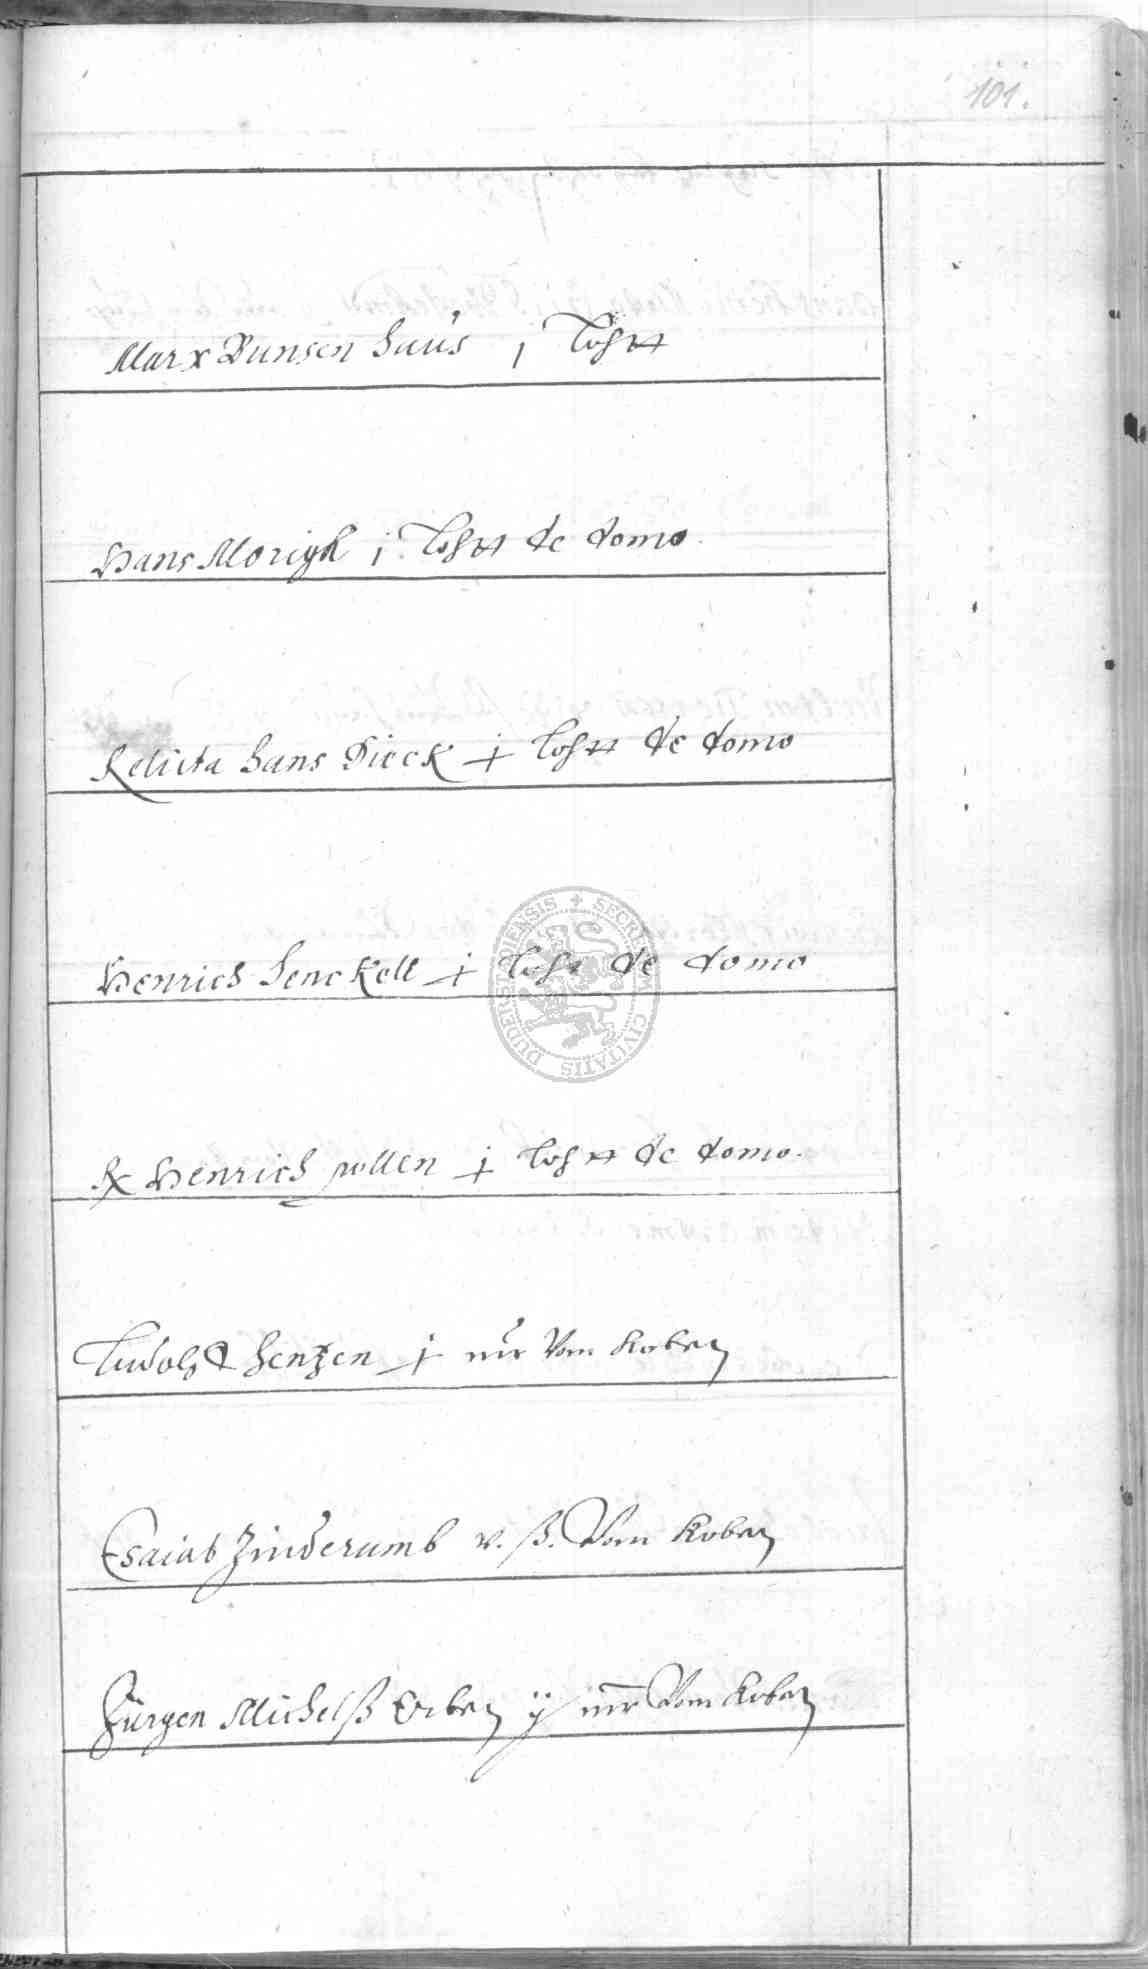 101.
Marx Bunsen Haus j Loht
Hans Morigk j Loht de domo.
Relicta Hans Dieck j Loht de domo
Henrich Henckell j Loht de domo
Rx Henrich pollen j Loht de domo.
Ludolff Hentzen j mr Von Koben
Esaias Zinderumb v. ß. Von Koben
Jürgen Michelß Erben ij mr Von Koben
SECRETUM CIVITATIS DUDERSTADIENSIS